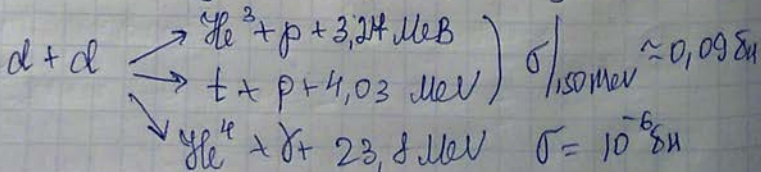 He³ + p + 3,24 МеВ
d + d → t + p + 4,03 MeV) σ/150 mev ≈ 0,09 бн
He⁴ + γ + 23,8 MeV σ = 10⁻⁶ бн